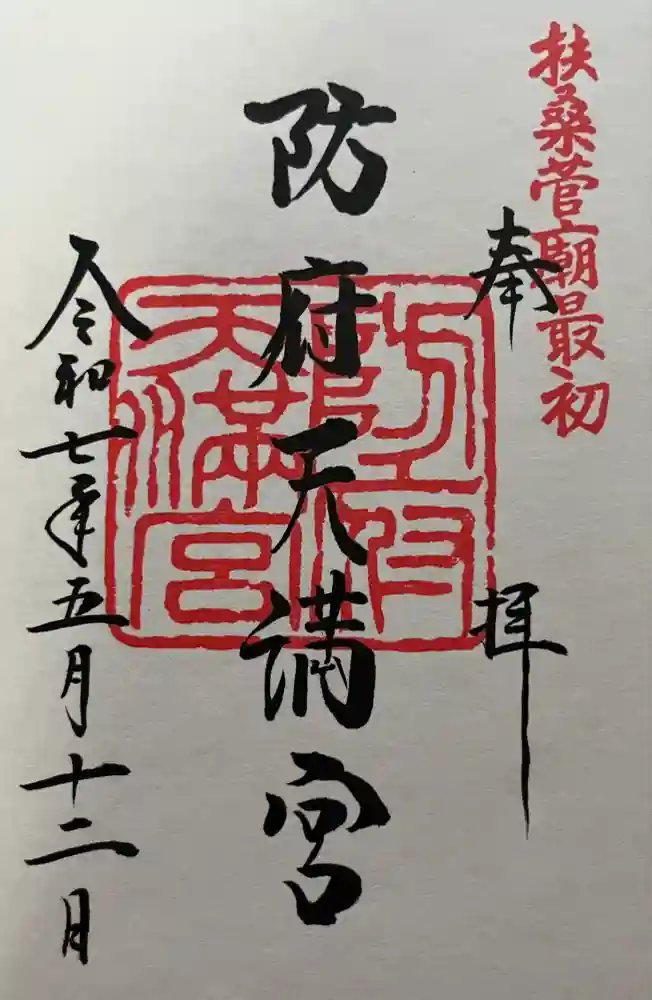 扶桑菅廟最初
奉拝
防府天満宮
天満宮
令和七年五月十二月